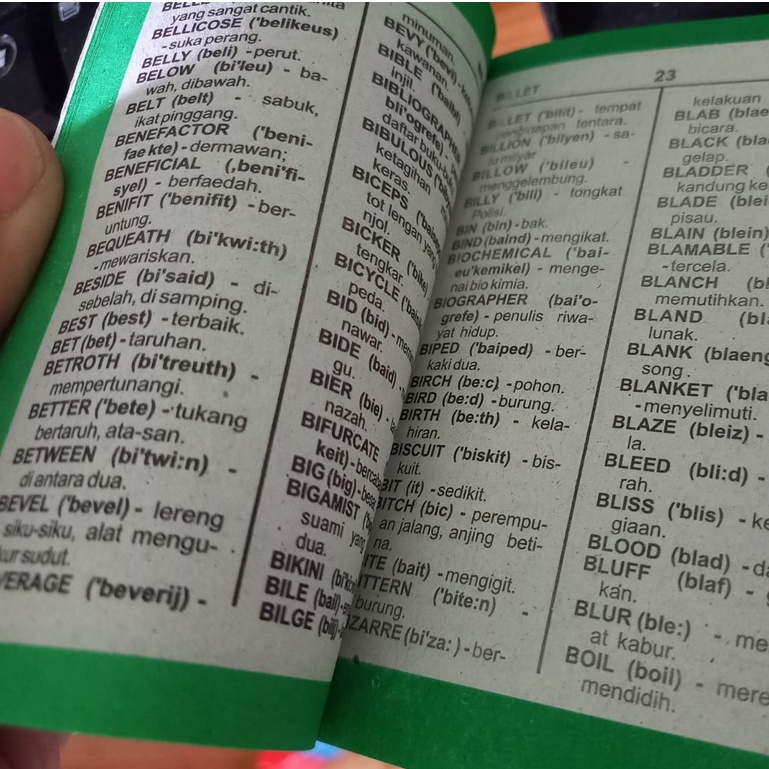 yang sangat cantik.
BELLICOSE ('belikeus)
-suka perang.
BELLY (beli) -perut.
BELOW (bi'leu) - ba-
wah, dibawah.
BELT (belt) - sabuk,
ikat pinggang.
BENEFACTOR ('beni-
fae kte) - dermawan;
BENEFICIAL (,beni'fi-
syel) - berfaedah.
BENIFIT ('benifit) - ber-
untung.
BEQUEATH (bi'kwi:th)
-mewariskan.
BESIDE (bi'said) - di-
sebelah, di samping.
BEST (best) -terbaik.
BET (bet) -taruhan.
BETROTH (bi'treuth) -
mempertunangi.
BETTER ('bete) - tukang
bertaruh, ata-san.
BETWEEN (bi'twi:n) -
di antara dua.
BEVEL ('bevel) - lereng
siku-siku, alat mengu-
kur sudut.
VERAGE ('beverij) -
minuman.
BEVY ('bevi) -
kawanan
BIBLE ('baibl)
injil.
BIBLIOGRAPHER
bli'ogrefe)
daftar buku-
BIBULOUS
ketagihan
keras.
BICEPS
tot lengan
njol.
BICKER ('bike)
tengkar.
BICYCLE
peda.
BID (bid)
nawar.
BIDE (baid)
gu.
BIER (bie)
nazah.
BIFURCATE
keit)
BIG (big)
BIGAMIST
suami yang
dua.
BIKINI
BILE (bail)
BILGE
BILLET
BILLET ('bilit) - tempat
penginapan tentara.
BILLION ('bilyen) - sa-
tu milyar
BILLOW ('bileu) -
menggelembung.
BILLY ('bili) - tongkat
Polisi.
BIN (bin) -bak.
BIND (baind) -mengikat.
BIOCHEMICAL ('bai-
eu'kemikel) - menge-
nai bio kimia.
BIOGRAPHER (bai'o-
grefe) - penulis riwa-
yat hidup.
BIPED ('baiped) - ber-
kaki dua.
BIRCH (be:c) -pohon.
BIRD (be:d) -burung.
BIRTH (be:th) - kela-
hiran.
BISCUIT ('biskit) - bis-
kuit.
BIT (it) -sedikit.
BITCH (bic) - perempu-
an jalang, anjing beti-
na.
ITE (bait) -mengigit.
TTERN ('bite:n) -
burung.
ZARRE (bi'za: ) - ber-
23
kelakuan
BLAB (blae
bicara.
BLACK (bla
gelap.
BLADDER (
kandung ke
BLADE (blei
pisau.
BLAIN (blein)
BLAMABLE ('
-tercela.
BLANCH (bl
memutihkan.
BLAND (bla
lunak.
BLANK (blaeng
song .
BLANKET ('bla
-menyelimuti.
BLAZE (bleiz) -
la.
BLEED (bli:d) -
rah.
BLISS ('blis) - ke
giaan.
BLOOD (blad) -da
BLUFF (blaf) -
kan.
BLUR (ble:) - me
at kabur.
BOIL (boil) - mere
mendidih.